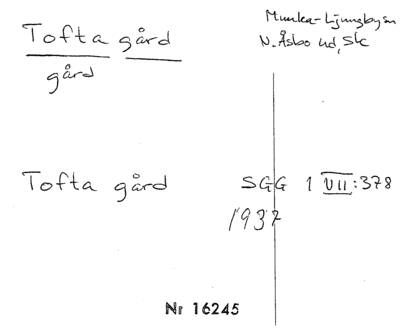 Tofta gård
gård
Munka-Ljungby sn
N. Åsbo hd, Sk
Tofta gård
SGG 1 VII:378
1937
Nr 16245